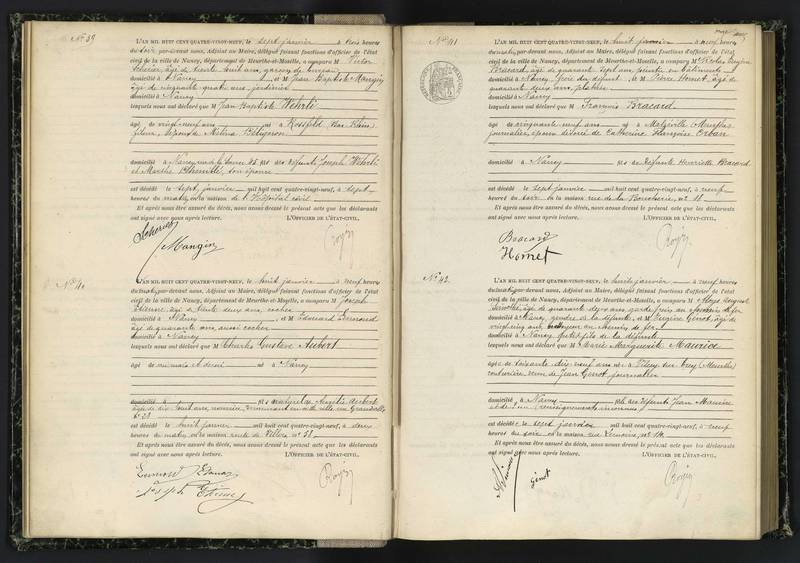 N° 39
L'AN MIL HUIT CENT QUATRE-VINGT-NEUF, le sept janvier à trois heures
du soir par-devant nous, Adjoint au Maire, délégué faisant fonctions d'officier de l'état
civil de la ville de Nancy, département de Meurthe-et-Moselle, a comparu M Victor
âgé de trente huit ans, garçon de bureau
domicilié à Nancy et M Jean Baptiste Mangin
âgé de cinquante quatre ans, jardinier
domicilié à Nancy
lesquels nous ont déclaré que M Jean Baptiste Wehrli
âgé de vingt neuf ans né à Rossfeld (Bas Rhin)
époux de Mélina Pétignon
domicilié à Nancy 45 fils des défunts Joseph Wehrli
et Marthe son épouse
est décédé le sept janvier mil huit cent quatre-vingt-neuf, à sept
heures du matin en la maison de l'hôpital civil
Et après nous être assuré du décès, nous avons dressé le présent acte que les déclarants
ont signé avec nous après lecture. L'OFFICIER DE L'ÉTAT-CIVIL,
Mangin
N° 40
L'AN MIL HUIT CENT QUATRE-VINGT-NEUF, le huit janvier à neuf heures
du matin par-devant nous, Adjoint au Maire, délégué faisant fonctions d'officier de l'état
civil de la ville de Nancy, département de Meurthe-et-Moselle, a comparu M Joseph
Etienne, âgé de trente deux ans, cocher
domicilié à Nancy et M Edouard
âgé de quarante ans, aussi cocher
domicilié à Nancy
lesquels nous ont déclaré que M Charles Gustave Aubert
âgé de un mois et demi né à Nancy
domicilié à fils naturel de Aurélie Aubert
âgée de dix huit ans, demeurant en cette ville rue Grandville
n° 28
est décédé le huit janvier mil huit cent quatre-vingt-neuf, à deux
heures du matin en la maison route de Villers n° 58
Et après nous être assuré du décès, nous avons dressé le présent acte que les déclarants
ont signé avec nous après lecture. L'OFFICIER DE L'ÉTAT-CIVIL,
Joseph Etienne
N° 41
L'AN MIL HUIT CENT QUATRE-VINGT-NEUF, le huit janvier à neuf heures
du matin par-devant nous, Adjoint au Maire, délégué faisant fonctions d'officier de l'état
civil de la ville de Nancy, département de Meurthe-et-Moselle, a comparu M Nicolas Eugène
Bracard, âgé de quarante sept ans, peintre en bâtiments
domicilié à Nancy, frère du défunt et M Pierre Homet, âgé de
quarante deux ans, plâtrier
domicilié à Nancy
lesquels nous ont déclaré que M François Bracard
âgé de cinquante neuf ans né à Malzéville (Meurthe)
journalier, époux divorcé de Catherine Françoise Erban
domicilié à Nancy fils de défunte Henriette Bracard
est décédé le sept janvier mil huit cent quatre-vingt-neuf, à neuf
heures du soir en la maison rue de la Boucherie, n° 11
Et après nous être assuré du décès, nous avons dressé le présent acte que les déclarants
ont signé avec nous après lecture. L'OFFICIER DE L'ÉTAT-CIVIL,
Bracard
Homet
N° 42
L'AN MIL HUIT CENT QUATRE-VINGT-NEUF, le huit janvier à neuf heures
du matin par-devant nous, Adjoint au Maire, délégué faisant fonctions d'officier de l'état
civil de la ville de Nancy, département de Meurthe-et-Moselle, a comparu M August
âgé de quarante deux ans, garde frein au chemin de fer
domicilié à Nancy, gendre de la défunte, et M Eugène Genot, âgé de
vingt cinq ans employé au chemin de fer
domicilié à Nancy, petit fils de la défunte
lesquels nous ont déclaré que M Marie Marguerite Maurice
âgée de soixante dix neuf ans née à (Meurthe)
couturière, veuve de Jean Genot journalier
domiciliée à Nancy fille des défunts Jean Maurice
et de (renseignements inconnus)
est décédée le sept janvier mil huit cent quatre-vingt-neuf, à neuf
heures du soir en la maison rue n° 14
Et après nous être assuré du décès, nous avons dressé le présent acte que les déclarants
ont signé avec nous après lecture. L'OFFICIER DE L'ÉTAT-CIVIL,
Génot